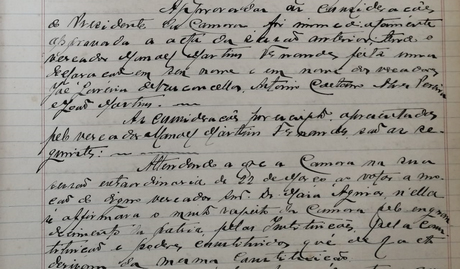 Approvadas as considerações
do Presidente da Camara foi immediatamente
approvada a acta da sessão anterior, tendo o
vereador Manoel Martins Fernandes feito uma
declaração em seu nome e em nome dos vereadores
José Pereira de Vasconcellos, Antonio Caetano Alves Pereira
e João Martins.
As considerações por escripto apresentadas
pelo vereador Manoel Martins Fernandes são as se-
guintes:
Attendendo a que a Camara na sua
sessão extraordinaria de 22 de Março ao votar a mo-
ção do digno vereador Snr. Dr. Maia Aguiar, n'ella
se affirmava o muito respeito da Camara pelo
pela patria, pelas Instituições, pela Cons-
tituição e poderes constituidos que de facto
da mesma Constituição